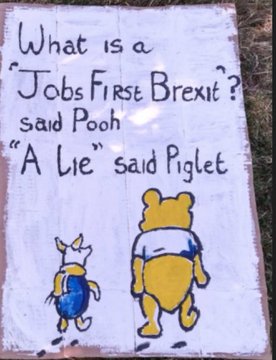 What is a
"Jobs First Brexit"?
said Pooh
"A Lie" said Piglet